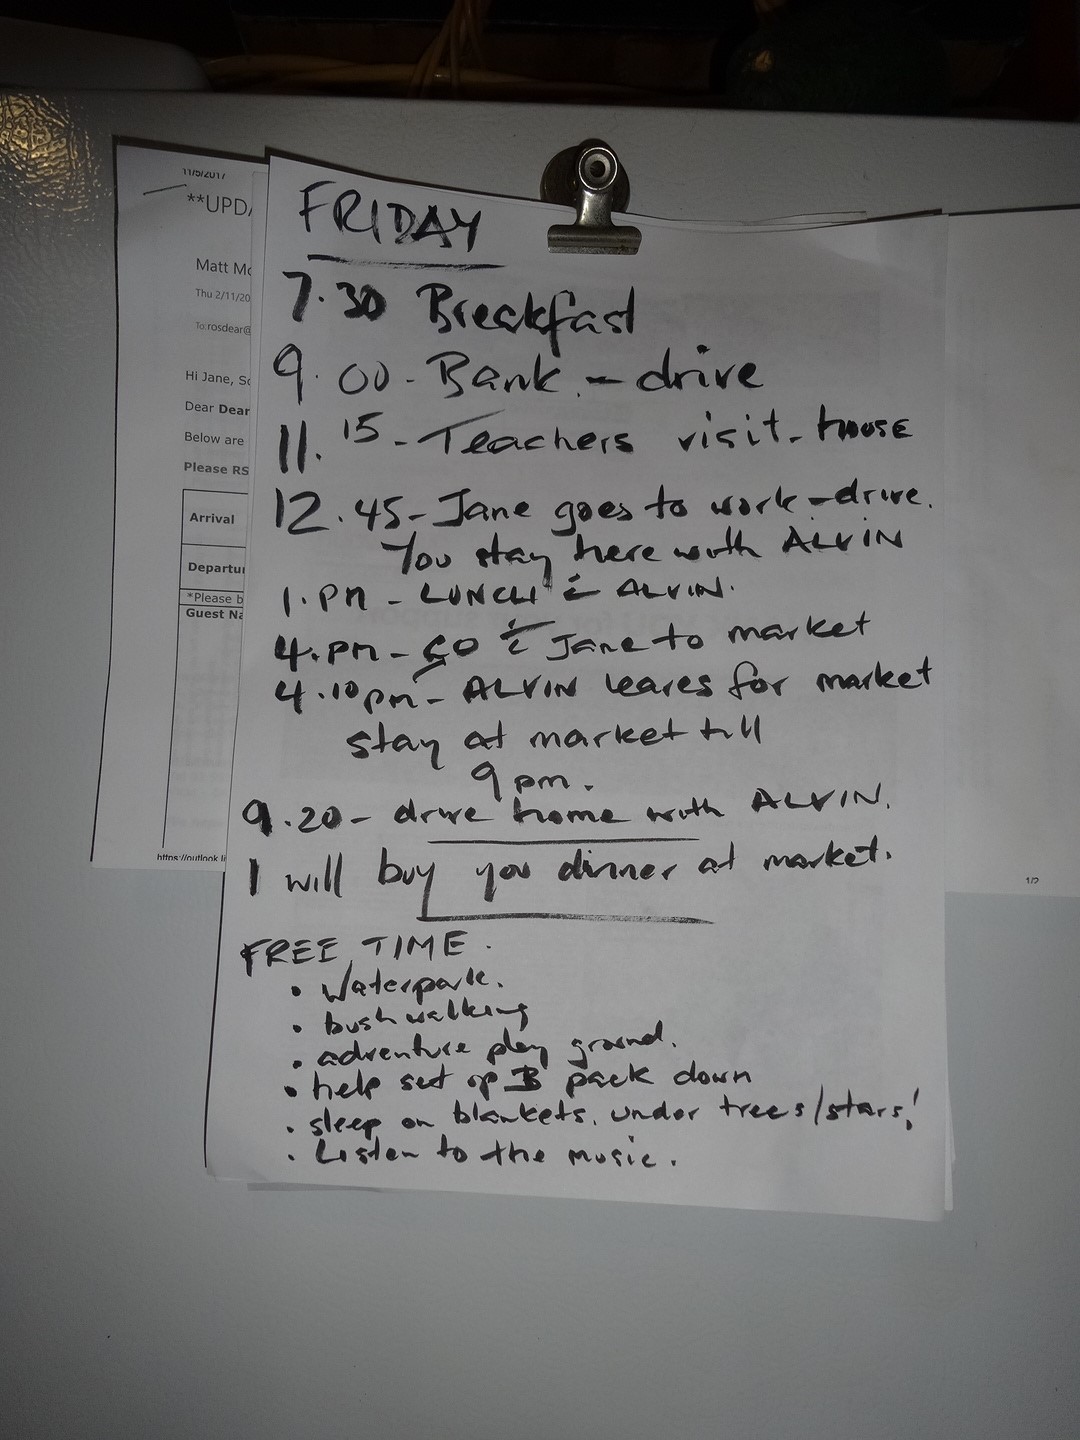 11/5/2017
**UPDA
Matt Mc
Thu 2/11/20
To:rosdear@
Hi Jane, Sc
Dear Dear
Below are
Please RS
Arrival
Departur
*Please b
Guest Na
https://outlook.li
FRIDAY
7.30 Breakfast
9.00 - Bank - drive
11.15 - Teachers visit - house
12.45 - Jane goes to work - drive.
You stay here with ALVIN
1.PM - LUNCH c̄ ALVIN.
4.pm - GO c̄ Jane to market
4.10pm - ALVIN leaves for market
stay at market till
9 pm.
9.20 - drive home with ALVIN.
I will buy you dinner at market.
FREE TIME.
• Waterpark.
• bushwalking
• adventure play ground.
• help set up & pack down
• sleep on blankets. under trees/stars!
• Listen to the music.
1/2